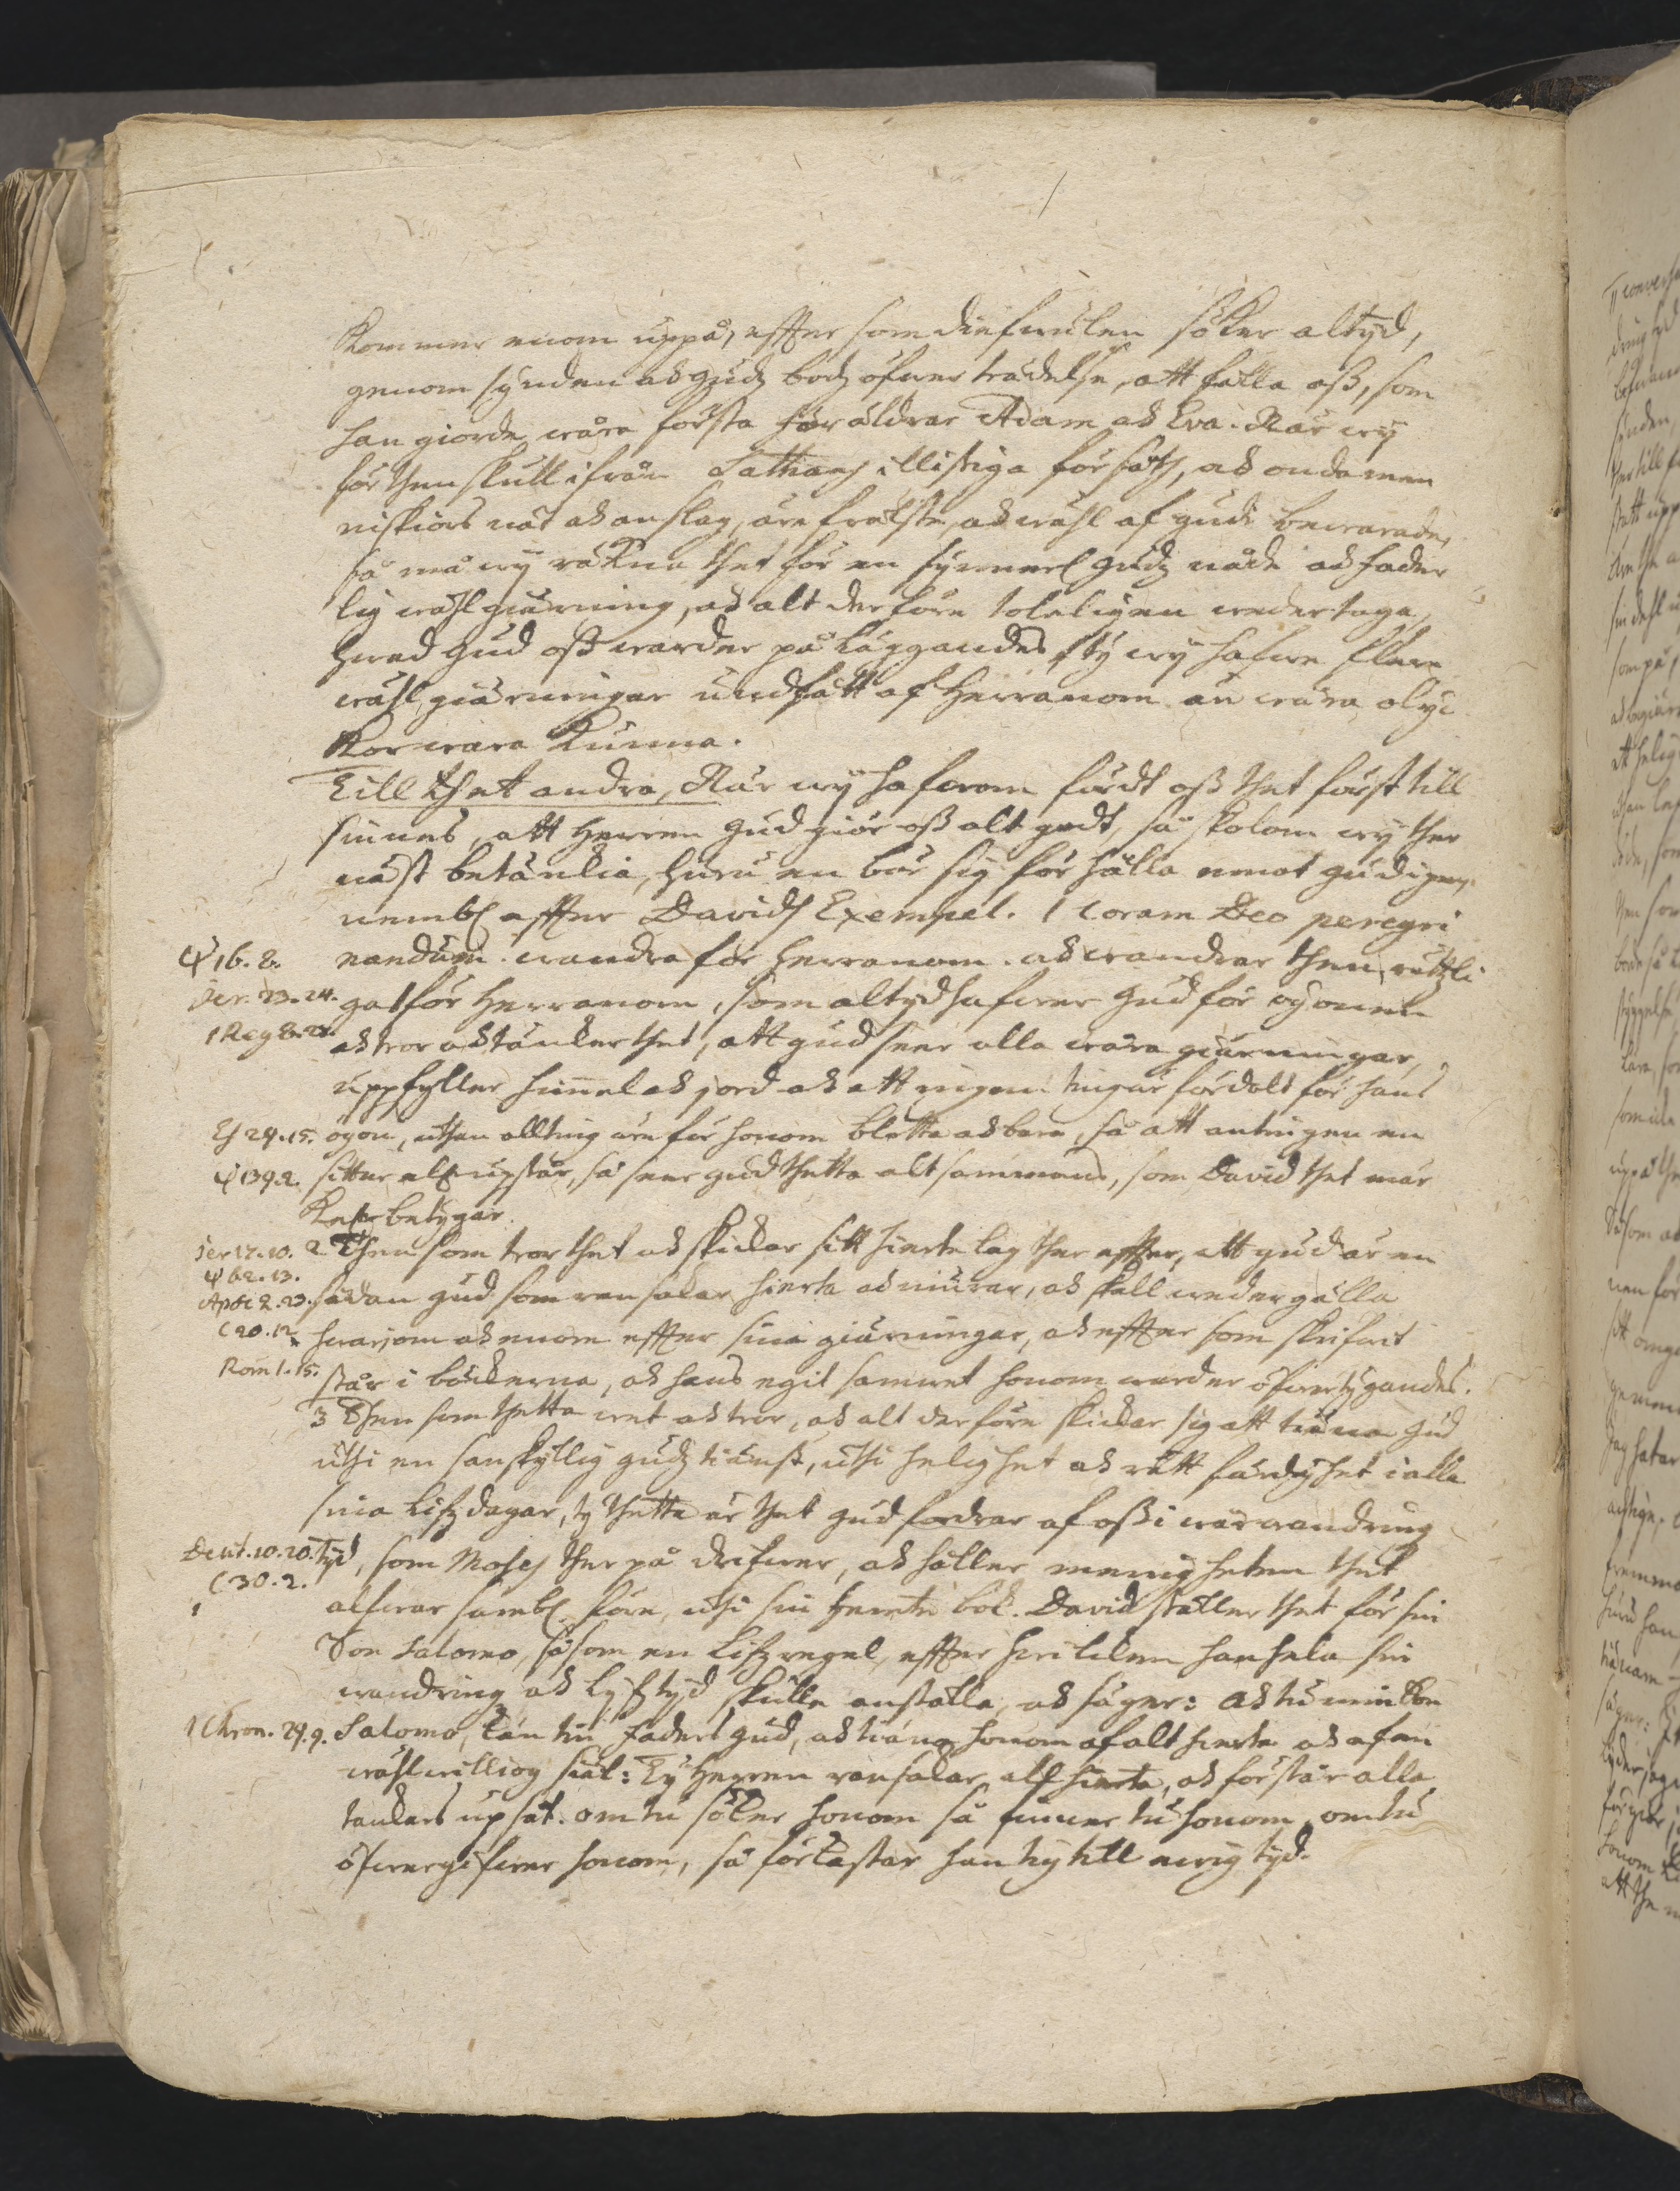 Kommer enom uppå, effter som diefwulen söker altyd,
genom synden och Gudz bodz öfwerträdelse, att fälla oss, som
han giorde wåra första föräldrar Adam och Eva. När wy
för then skull ifrån Sathans illistiga försåth, och onda men
niskiors nät och anslag, äre frälste, och wähl af Gudi bewarade,
så må wy räkna thet för en synnerl Gudz nåde och fader
lig wählgiärning, och alt derföre toleligen wedertaga,
hwad Gud oss warder påläggandes, ty wy hafwe flere
wählgiärningar undfått af Herranom än wåra olyc
kor wara kunna.
Till thet andra, När wy hafwom fördt oss thet först till
sinnes, att Herren Gud giör oss alt godt, så skolom wy ther
näst betänckia, huru en bör sig förhålla emot Gud igen,
nembl effter Davids Exempel. 1 Coram Deo peregri
ψ 16. 8. nandum. wandra för Herranom. och wandrar then rättli
Jer. 23. 24. ga för Herranom, som altyd hafwer Gud för ögonen
1 Reg 8. 27. och tror och täncker thet, att Gud seer alla wåra giärningar,
uppfyller himmel och jord och att ingen ting är fördolt för hans
Es 29. 15. ögon, uthan allting äre för honom blotta och bara, så att antingen en
ψ 139. 2. sitter eller upstår, så seer Gud thetta altsammans, som David thet mär
kel betygar.
Jer 17. 10. 2 Then som tror thet och skickar sitt hiertelag ther effter, att Gud är en
ψ 62. 13.
Apoc 2. 23. sådan Gud som ransakar hierta och niurar, och skall wedergälla
C 20. 12 hwarjom och enom effter sina giärningar, och effter som skrifwit
Rom 1. 15. står i böckerna, och hans egit samwet honom warder öfwertygandes.
3 Then som thetta wet och tror, och alt derföre skickar sig att tiäna Gud
uthi en sanskyllig gudztiänst, uthi helighet och rättfärdighet i alla
sina lifzdagar, ty thetta är thet Gud fordrar af oss i wår wandring
Deut. 10. 20. tyd, som Moses ther på drifwer, och håller menigheten thet
C 30. 2.
alfwarsambl före, uthi sin femte bok. David ställer thet för sin
Son Salomo, såsom en lifzregel, effter hwilcken han hela sin
wandring och lyfztyd skulle anställa, och säger: Och tu min Son
1 Chron. 29. 9. Salomo, kän tin faders Gud, och tiäna honom af alt hierta och af en
wählwilliog siäl: Ty Herren ransakar all hierta, och förstår alla
tanckars upsåt. om tu söker honom så finner tu honom, om tu
öfwergifwer honom, så förkastar han tig till ewig tyd.